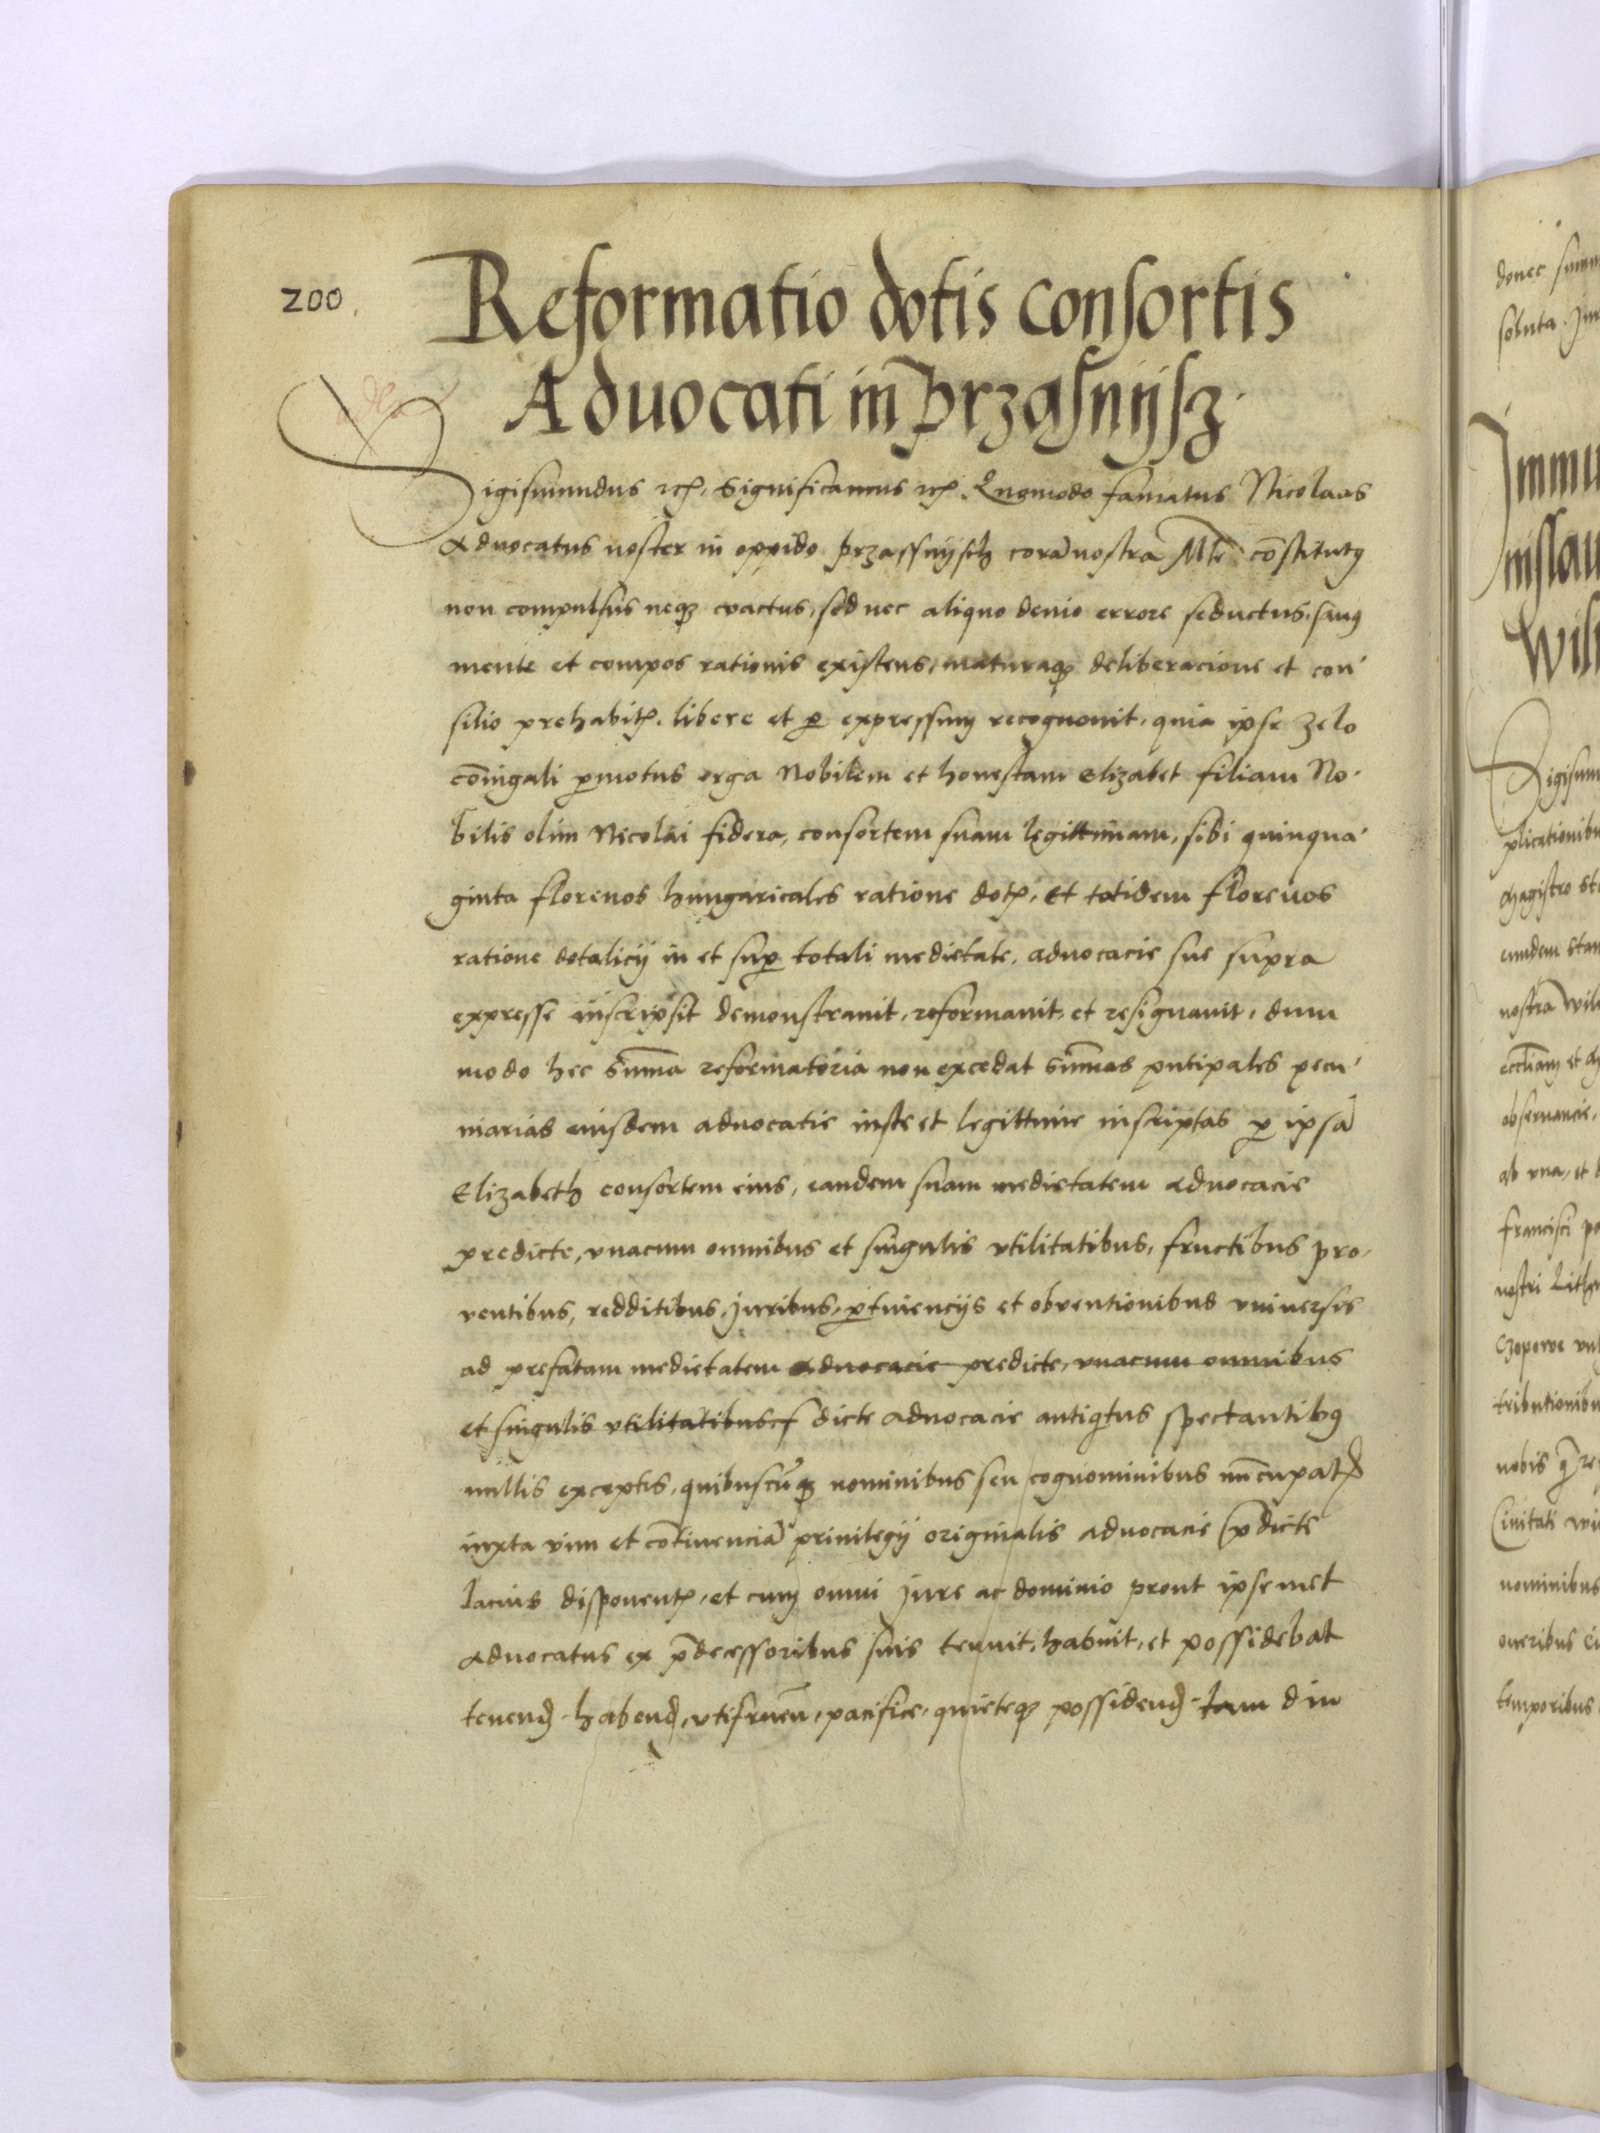 200.
Reformatio dotis consortis
Advocati in Przasnijsz.
Sigismundus rcꝭ. Significamus rcꝭ. Quomodo famatus Nicolaus
Advocatus noster in oppido przassnijsch corā nostra Mte cōstitutꝰ
non compulsus neqꝫ coactus, sed nec aliquo devio errore seductus, sanꝰ
mente et compos rationis existens, maturaqꝫ deliberacione et con-
silio prehabitꝭ. libere et ꝑ expressum recognovit, quia ipse zelo
cōiugali ꝑmotus erga Nobilem et honestam Elizabet filiam No-
bilis olim Nicolai fidera, consortem suam legittimam, sibi quinqua-
ginta florenos hungaricales ratione dotꝭ. Et totidem florenos
ratione dotalicij in et suꝑ totali medietate, advocacie sue supra
expresse inscripsit demonstravit, reformavit, et resignavit, dum
modo hec sūma reformatoria non excedat sūmas pntipales pecu-
niarias eiusdem advocatie iuste et legittime inscriptas ꝑ ipsā
Elizabeth consortem eius, eandem suam medietatem advocacie
predicte, vnacum omnibus et singulis vtilitatibus, fructibus pro-
ventibus, redditibus, juribus, ꝑtinencijs et obventionibus vniversis
ad prefatam medietatem advocacie predicte, vnacum omnibus
et singulis vtilitatibus dicte advocacie antiqtus spectantibꝰ
nullis exceptis, quibuscūqꝫ nominibus seu cognominibus nūcupatꝭ
iuxta vim et cōtinenciā privilegij originalis advocacie p̄dicte
lacius disponentꝭ, et cum omni jure ac dominio prout ipsemet
advocatus ex p̄decessoribus suis tenuit, habuit, et possidebat
tenenđ. habenđ, vtifruen̄, pacifice, quieteqꝫ possidenđ. tam diu
donec
soluta.
Immu
nislau
Wil
Sigism
plicationibu
Magistro
nostra
observancie,
ab vna, et
francisci
nostri Lith
tributionibu
nobis
Civitati
nominibus
oneribus
temporibus